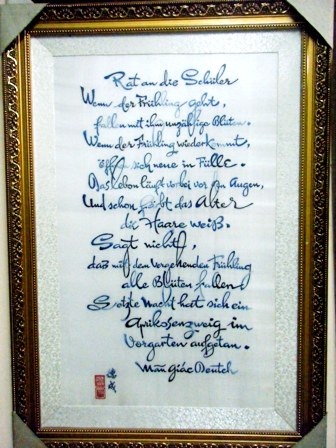 Rat an die Schüler
Wenn der Frühling geht,
fallen mit ihm unzählige Blüten.
Wenn der Frühling wiederkommt,
öffnen sich neue in Fülle.
Das Leben läuft vorbei vor den Augen,
Und schon färbt das Alter
die Haare weiß.
Sagt nicht,
daß mit dem vergehenden Frühling
alle Blüten fallen!
Letzte Nacht hat sich ein
Aprikosenzweig im
Vorgarten aufgetan.
Mãn Giác Deutch